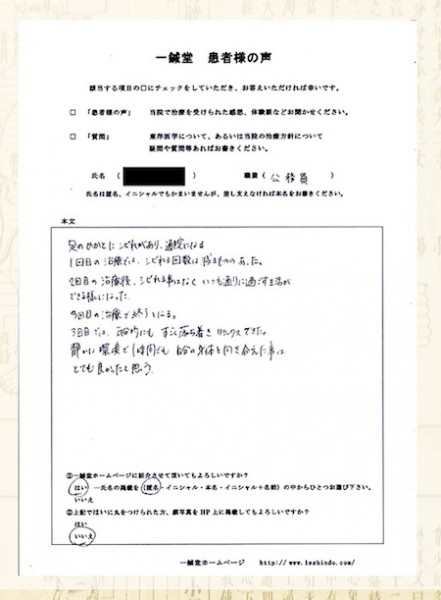 一鍼堂 患者様の声
該当する項目の□にチェックをしていただき、お答えいただければ幸いです。
□ 「患者様の声」 当院で治療を受けられた感想、体験談などお聞かせください。
□ 「質問」 東洋医学について、あるいは当院の治療方針について
疑問や質問等あればお書きください。
氏名（ ） 職業（ 公務員 ）
氏名は匿名、イニシャルでもかまいませんが、差し支えなければ本名をお書きください。
本文
足のかかとにシビれがあり、通院になる
1回目の治療では、シビれる回数は減るものの、あった。
2回目の治療後、シビれる事はなく いつも通りに過ごす事が
できる様になった。
3回目の治療で終了となる。
3回目では、精神的にも すごく落ち着き リラックスできた。
静かな環境で1時間でも 自分の身体と向き合えた事は
とても良かったと思う。
②一鍼堂ホームページに紹介させて頂いてもよろしいですか？
はい ―氏名の掲載を（匿名・イニシャル・本名・イニシャル＋名前）の中からひとつお選び下さい。
いいえ
③上記ではいに丸をつけられた方、顔写真をHP上に掲載してもよろしいですか？
はい
いいえ
一鍼堂ホームページ http://www.isshindo.com/